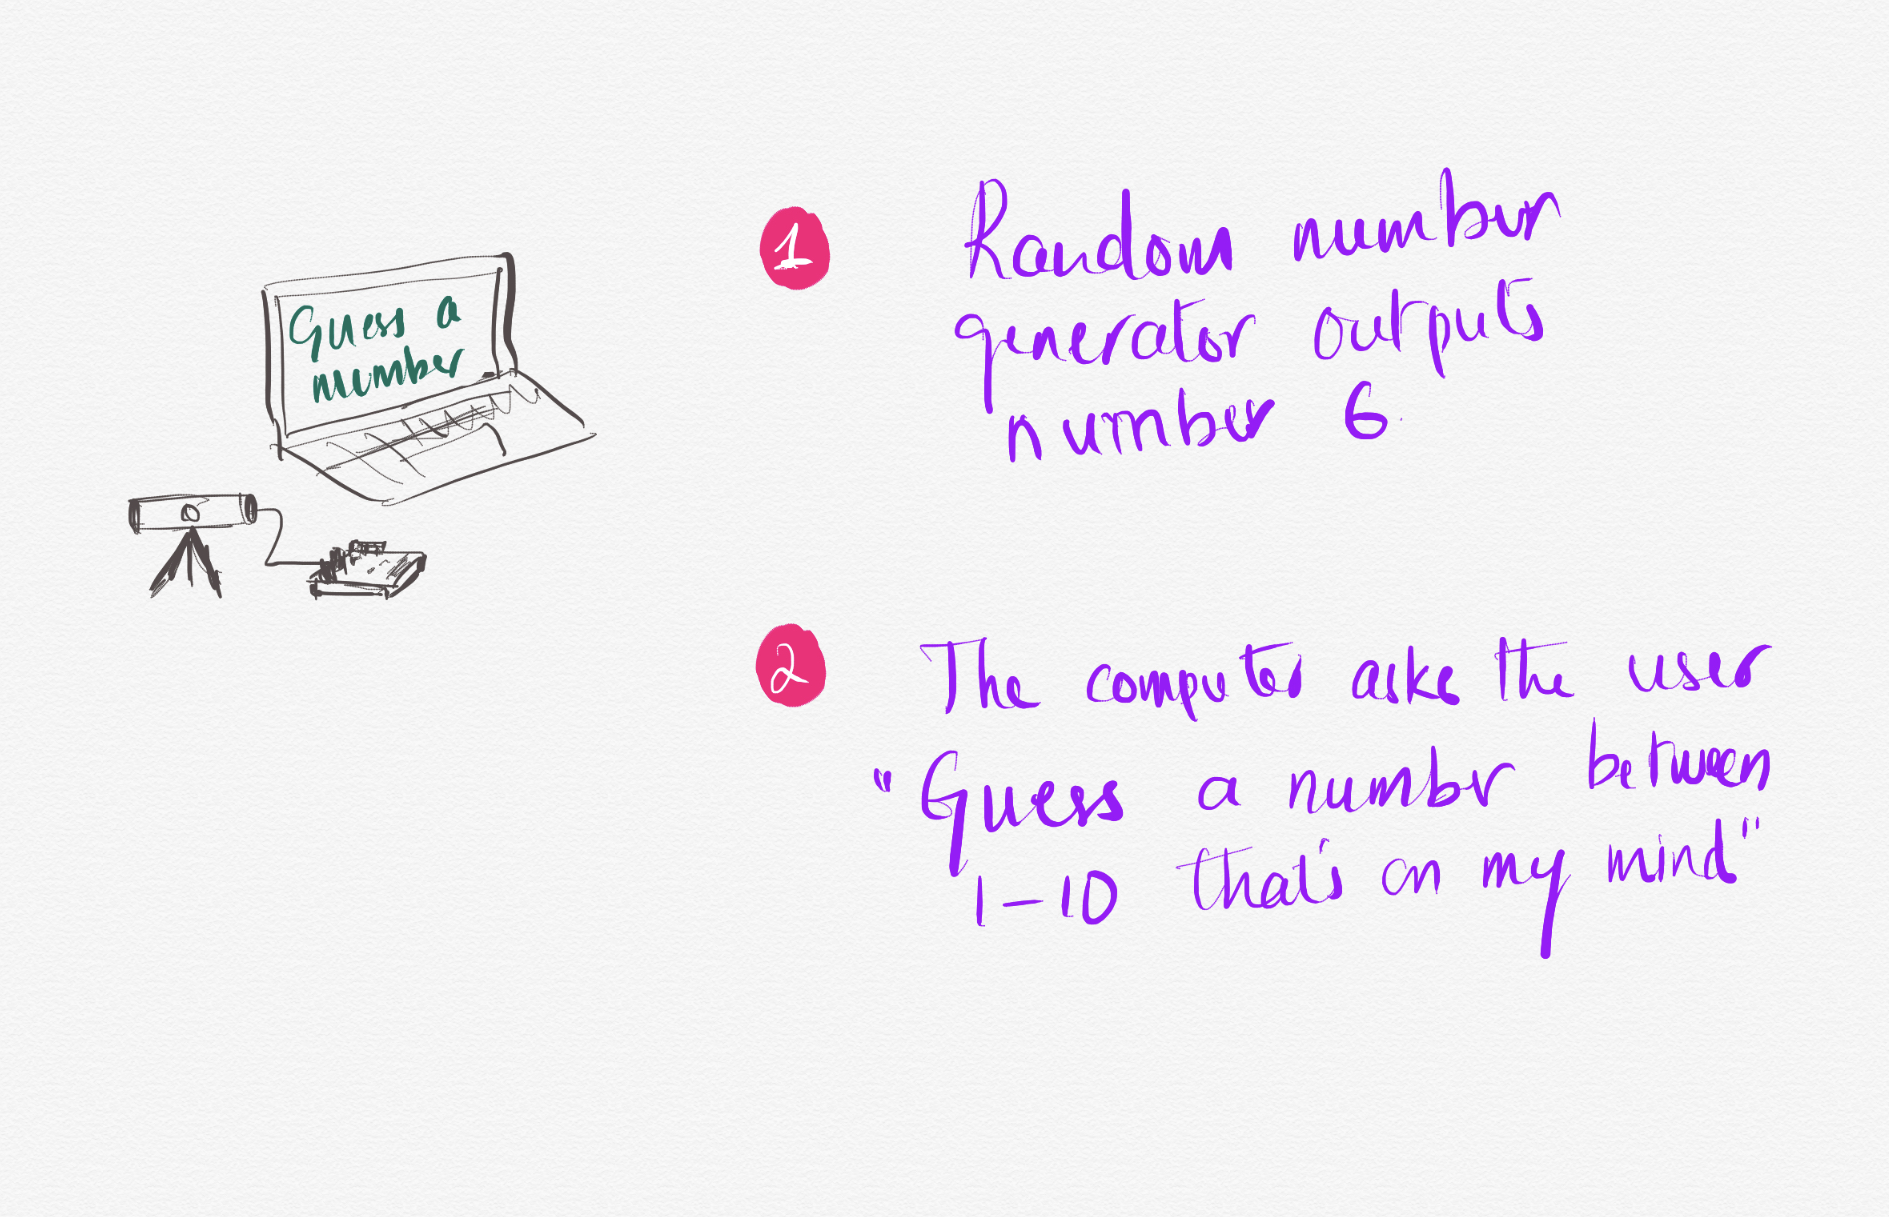 Guess a
number
1
Random number
generator outputs
number 6.
2
The computer asks the user
"Guess a number between
1-10 that's on my mind"